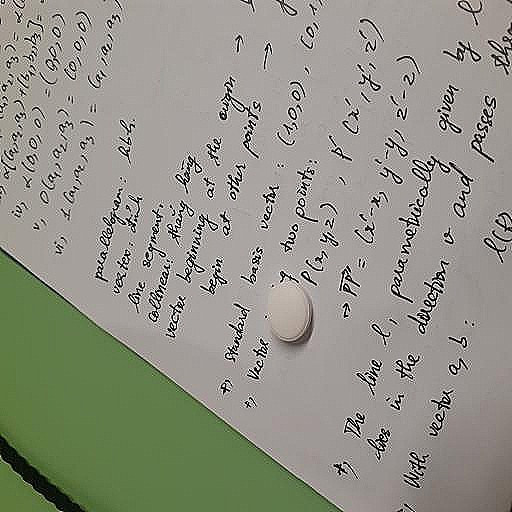 (a₁, a₂, a₃) =
α[(a₁, a₂, a₃) + (b₁, b₂, b₃)] =
iv, α(0, 0, 0) = (0, 0, 0)
v, 0(a₁, a₂, a₃) = (0, 0, 0)
vi, 1(a₁, a₂, a₃) = (a₁, a₂, a₃)
parallelogram: hbh.
vector: đích
line segment:
collinear: thẳng hàng
vector beginning at the origin →
begin at other points →
+, Standard basis vector: (1,0,0), (0,1,
+, Vector two points:
P(x, y, z), P'(x', y', z')
⇒ PP' = (x'-x, y'-y, z'-z)
+, The line l, parametrically given by l
lies in the direction v and passes
l(t)
+, With vector a, b: